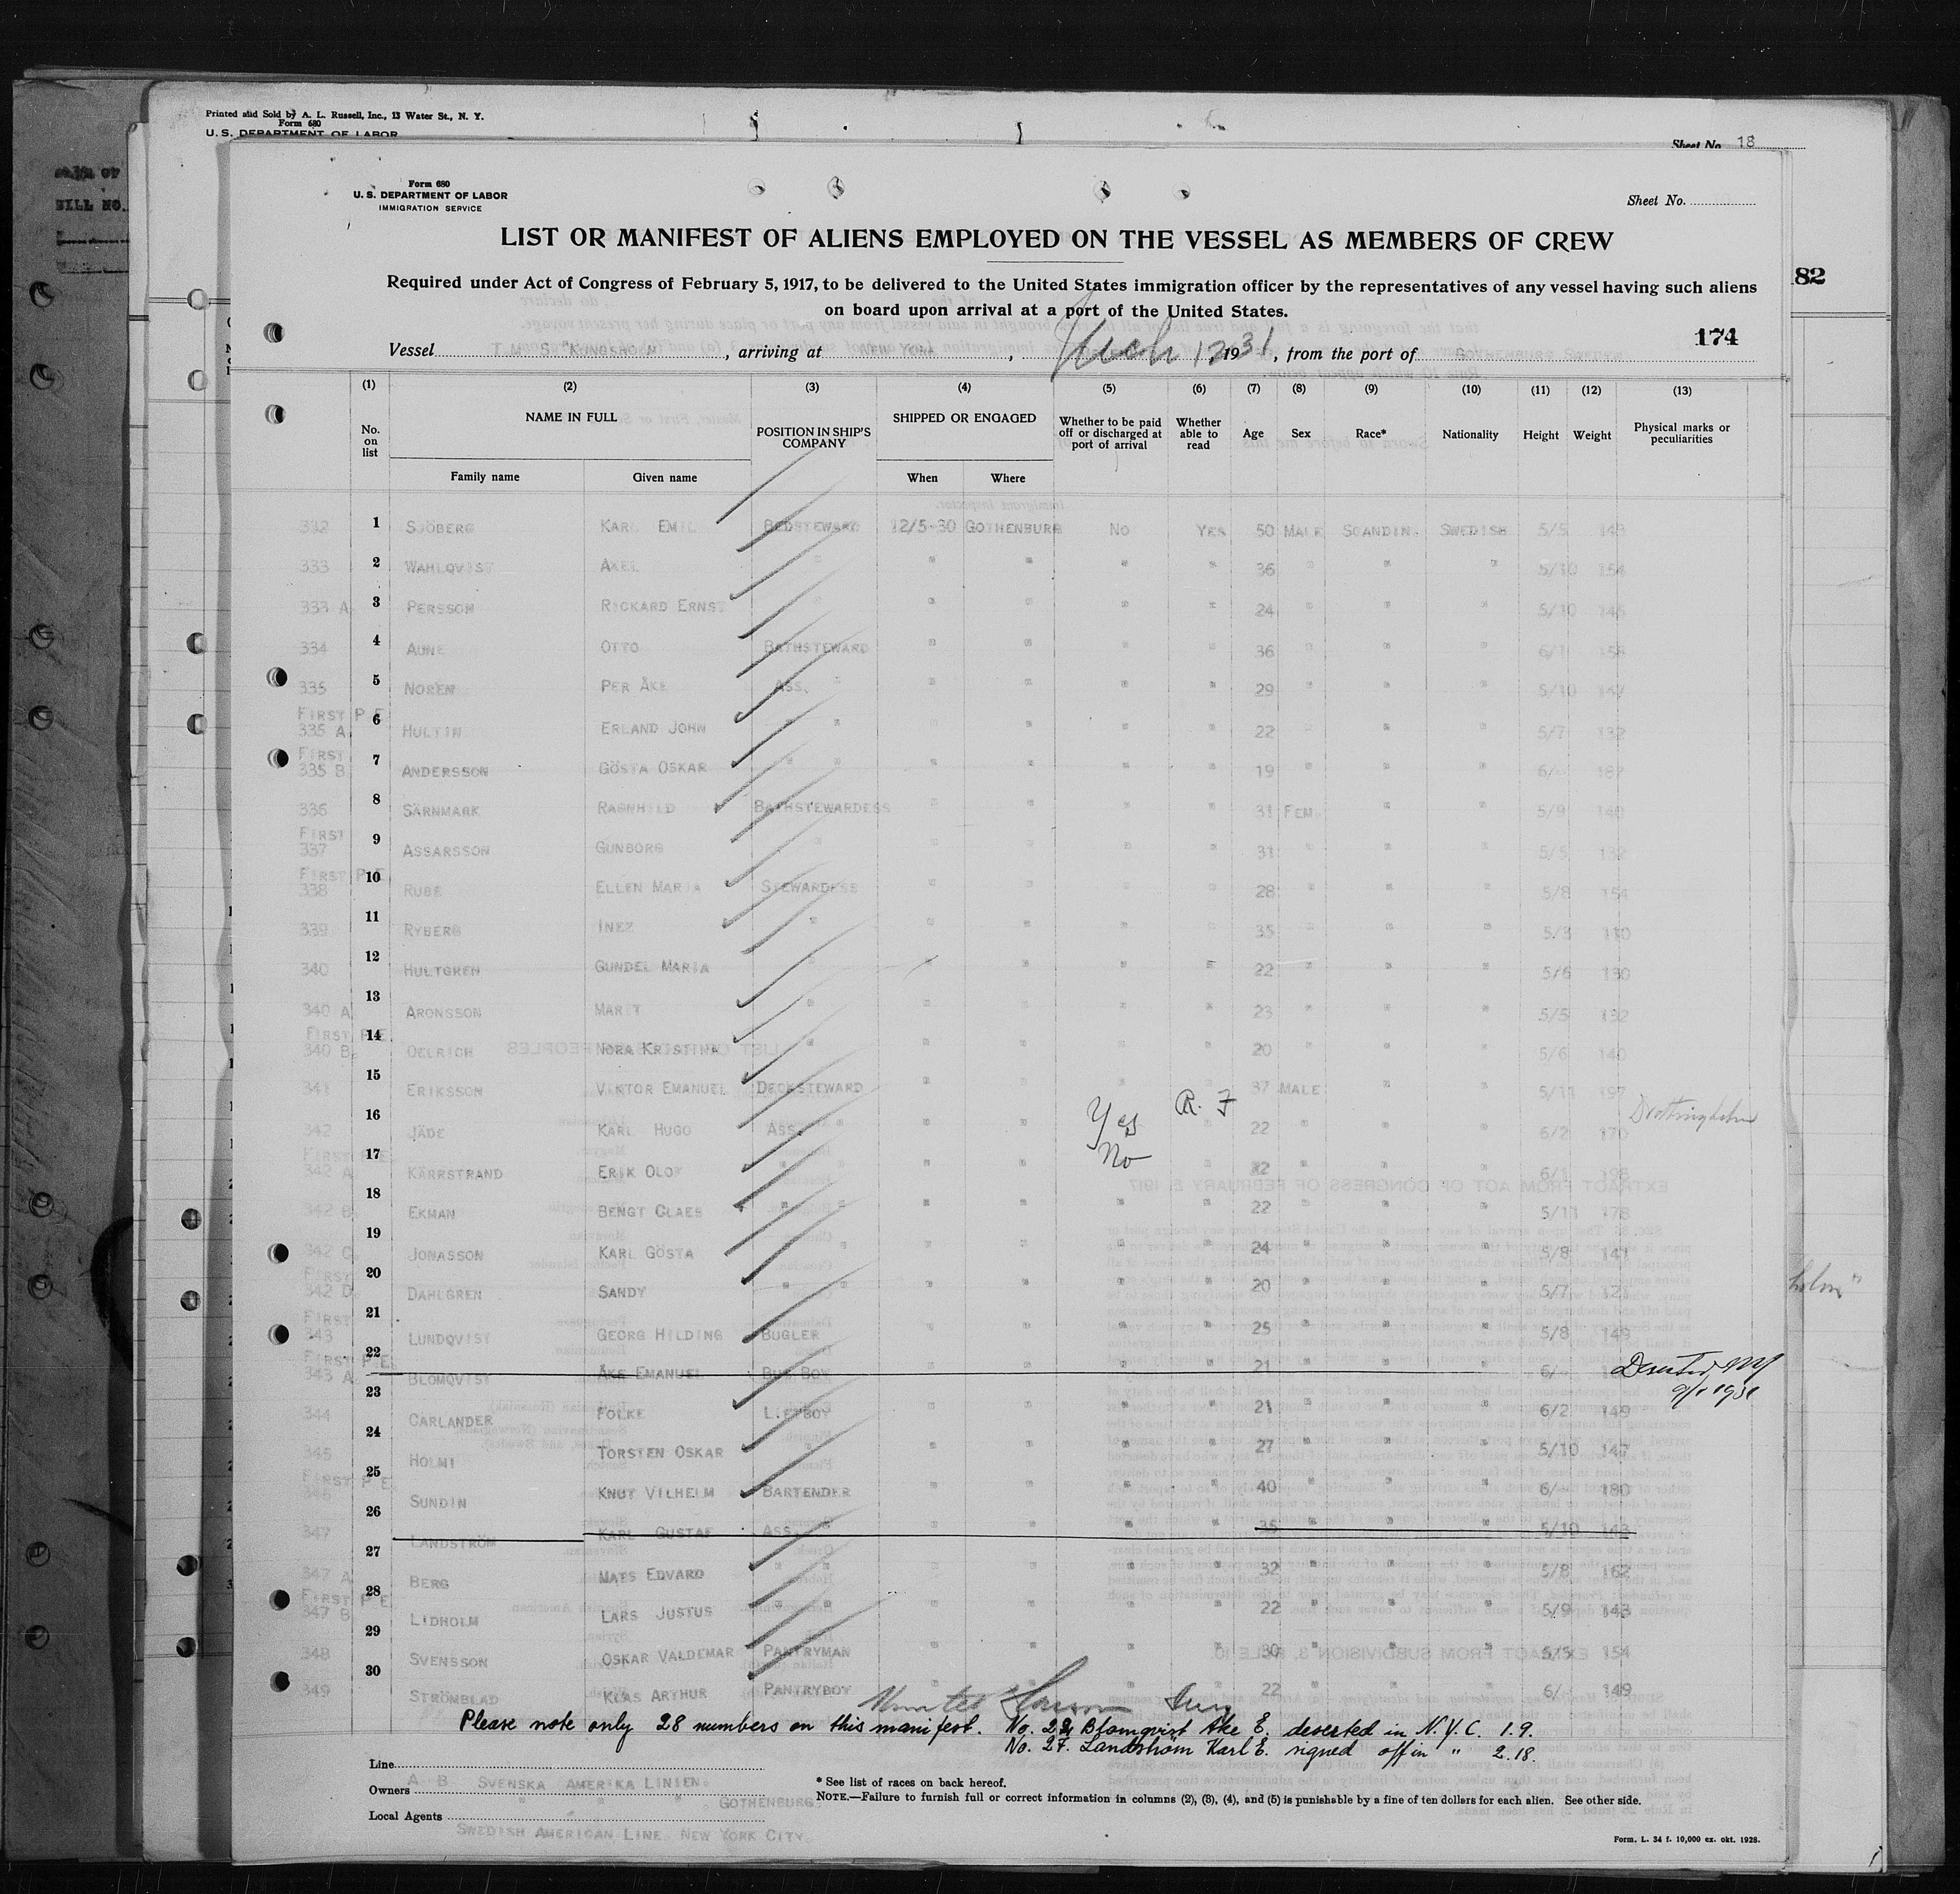 Printed and Sold by A. L. Russell, Inc., 13 Water St., N. Y.
Form 680
U. S. DEPARTMENT OF LABOR
Sheet No. 18
Form 680
U. S. DEPARTMENT OF LABOR
IMMIGRATION SERVICE
Sheet No.
LIST OR MANIFEST OF ALIENS EMPLOYED ON THE VESSEL AS MEMBERS OF CREW
82
Required under Act of Congress of February 5, 1917, to be delivered to the United States immigration officer by the representatives of any vessel having such aliens
on board upon arrival at a port of the United States.
174
Vessel T.M. S "KUNGSHOLM", arriving at NEW YORK, Mch 12 1931, from the port of
(1) (2) (3) (4) (5) (6) (7) (8) (9) (10) (11) (12) (13)
No. on list NAME IN FULL POSITION IN SHIP'S COMPANY SHIPPED OR ENGAGED Whether to be paid off or discharged at port of arrival Whether able to read Age Sex Race* Nationality Height Weight Physical marks or peculiarities
Family name Given name When Where
332 1 SJÖBERG KARL EMIL BEDSTEWARD 12/5-30 GOTHENBURG NO YES 50 MALE SCANDIN. SWEDISH 5/5 149
333 2 WAHLQVIST AXEL " " " " " 36 " " " 5/10 154
333 A 3 PERSSON RICKARD ERNST " " " " " 24 " " " 5/10 145
334 4 AUNE OTTO BATHSTEWARD " " " " 36 " " " 6/1 158
335 5 NORÉN PER ÅKE ASS. " " " " " 29 " " " 5/10 147
FIRST P E
335 A 6 HULTIN ERLAND JOHN " " " " " " 22 " " " 5/7 132
FIRST
335 B 7 ANDERSSON GÖSTA OSKAR " " " " " " 19 " " " 6/ 187
336 8 SÄRNMARK RAGNHILD BATHSTEWARDESS " " " " 31 FEM. " " 5/9 140
FIRST
337 9 ASSARSSON GUNBORG " " " " 31 " " " 5/5 132
FIRST P E
338 10 RUBE ELLEN MARIA STEWARDESS " " " " 28 " " " 5/8 154
339 11 RYBERG INEZ " " " " " 35 " " " 5/3 110
340 12 HULTGREN GUNDEL MARIA " " " " " 22 " " " 5/6 130
340 A 13 ARONSSON MARIT " " " " " 23 " " " 5/5 132
FIRST P E.
340 B. 14 OELRICH NORA KRISTINA " " " " 20 " " " 5/6 140
341 15 ERIKSSON VIKTOR EMANUEL DECKSTEWARD " " " " 37 MALE " " 5/11 197
342 16 JÄDE KARL HUGO ASS. " " " Yes R. F 22 " " " 6/2 170 Drottningholm
FIRST P E.
342 A 17 KÄRRSTRAND ERIK OLOF " " " No " 22 " " " 6/1 198
342 B. 18 EKMAN BENGT CLAES " " " " " " 22 " " " 5/11 178
342 C. 19 JONASSON KARL GÖSTA " " " " " 24 " " " 5/8 141
FIRST
342 D. 20 DAHLGREN SANDY " " " " " " 20 " " " 5/7 121
holm"
FIRST
343 21 LUNDQVIST GEORG HILDING BUGLER " " " " 25 " " " 5/8 149
FIRST P E.
343 A. 22 BLOMQVIST ÅKE EMANUEL " " " " 21 " " " 6/ Deserted NY
344 23 CARLANDER FOLKE LIFTBOY " " " " 21 " " " 6/2 149
345 24 HOLMI TORSTEN OSKAR " " " " " 27 " " " 5/10 147
FIRST P E
346 25 SUNDIN KNUT VILHELM BARTENDER " " " " 40 " " " 6/ 180
347 26 LANDSTRÖM KARL GUSTAF ASS. " " " " 35 " " " 5/10 143
347 A 27 BERG MATS EDVARD " " " " " " 32 " " " 5/8 162
FIRST P E
347 B 28 LIDHOLM LARS JUSTUS " " " " " " 22 " " " 5/9 143
348 29 SVENSSON OSKAR VALDEMAR PANTRYMAN " " " " 30 " " " 5/5 154
349 30 STRÖMBLAD KLAS ARTHUR PANTRYBOY " " " " 22 " " " 6/ 149
Please note only 28 numbers on this manifest. No. 22 Blomqvist Åke E. deserted in N.Y.C. 1.9.
No. 27. Landström Karl E. signed off in " 2.18.
Line
A B SVENSKA AMERIKA LINIEN.
Owners " " " GOTHENBURG.
Local Agents
SWEDISH AMERICAN LINE. NEW YORK CITY.
* See list of races on back hereof.
NOTE.—Failure to furnish full or correct information in columns (2), (3), (4), and (5) is punishable by a fine of ten dollars for each alien. See other side.
Form. L. 34 f. 10,000 ex. okt. 1928.